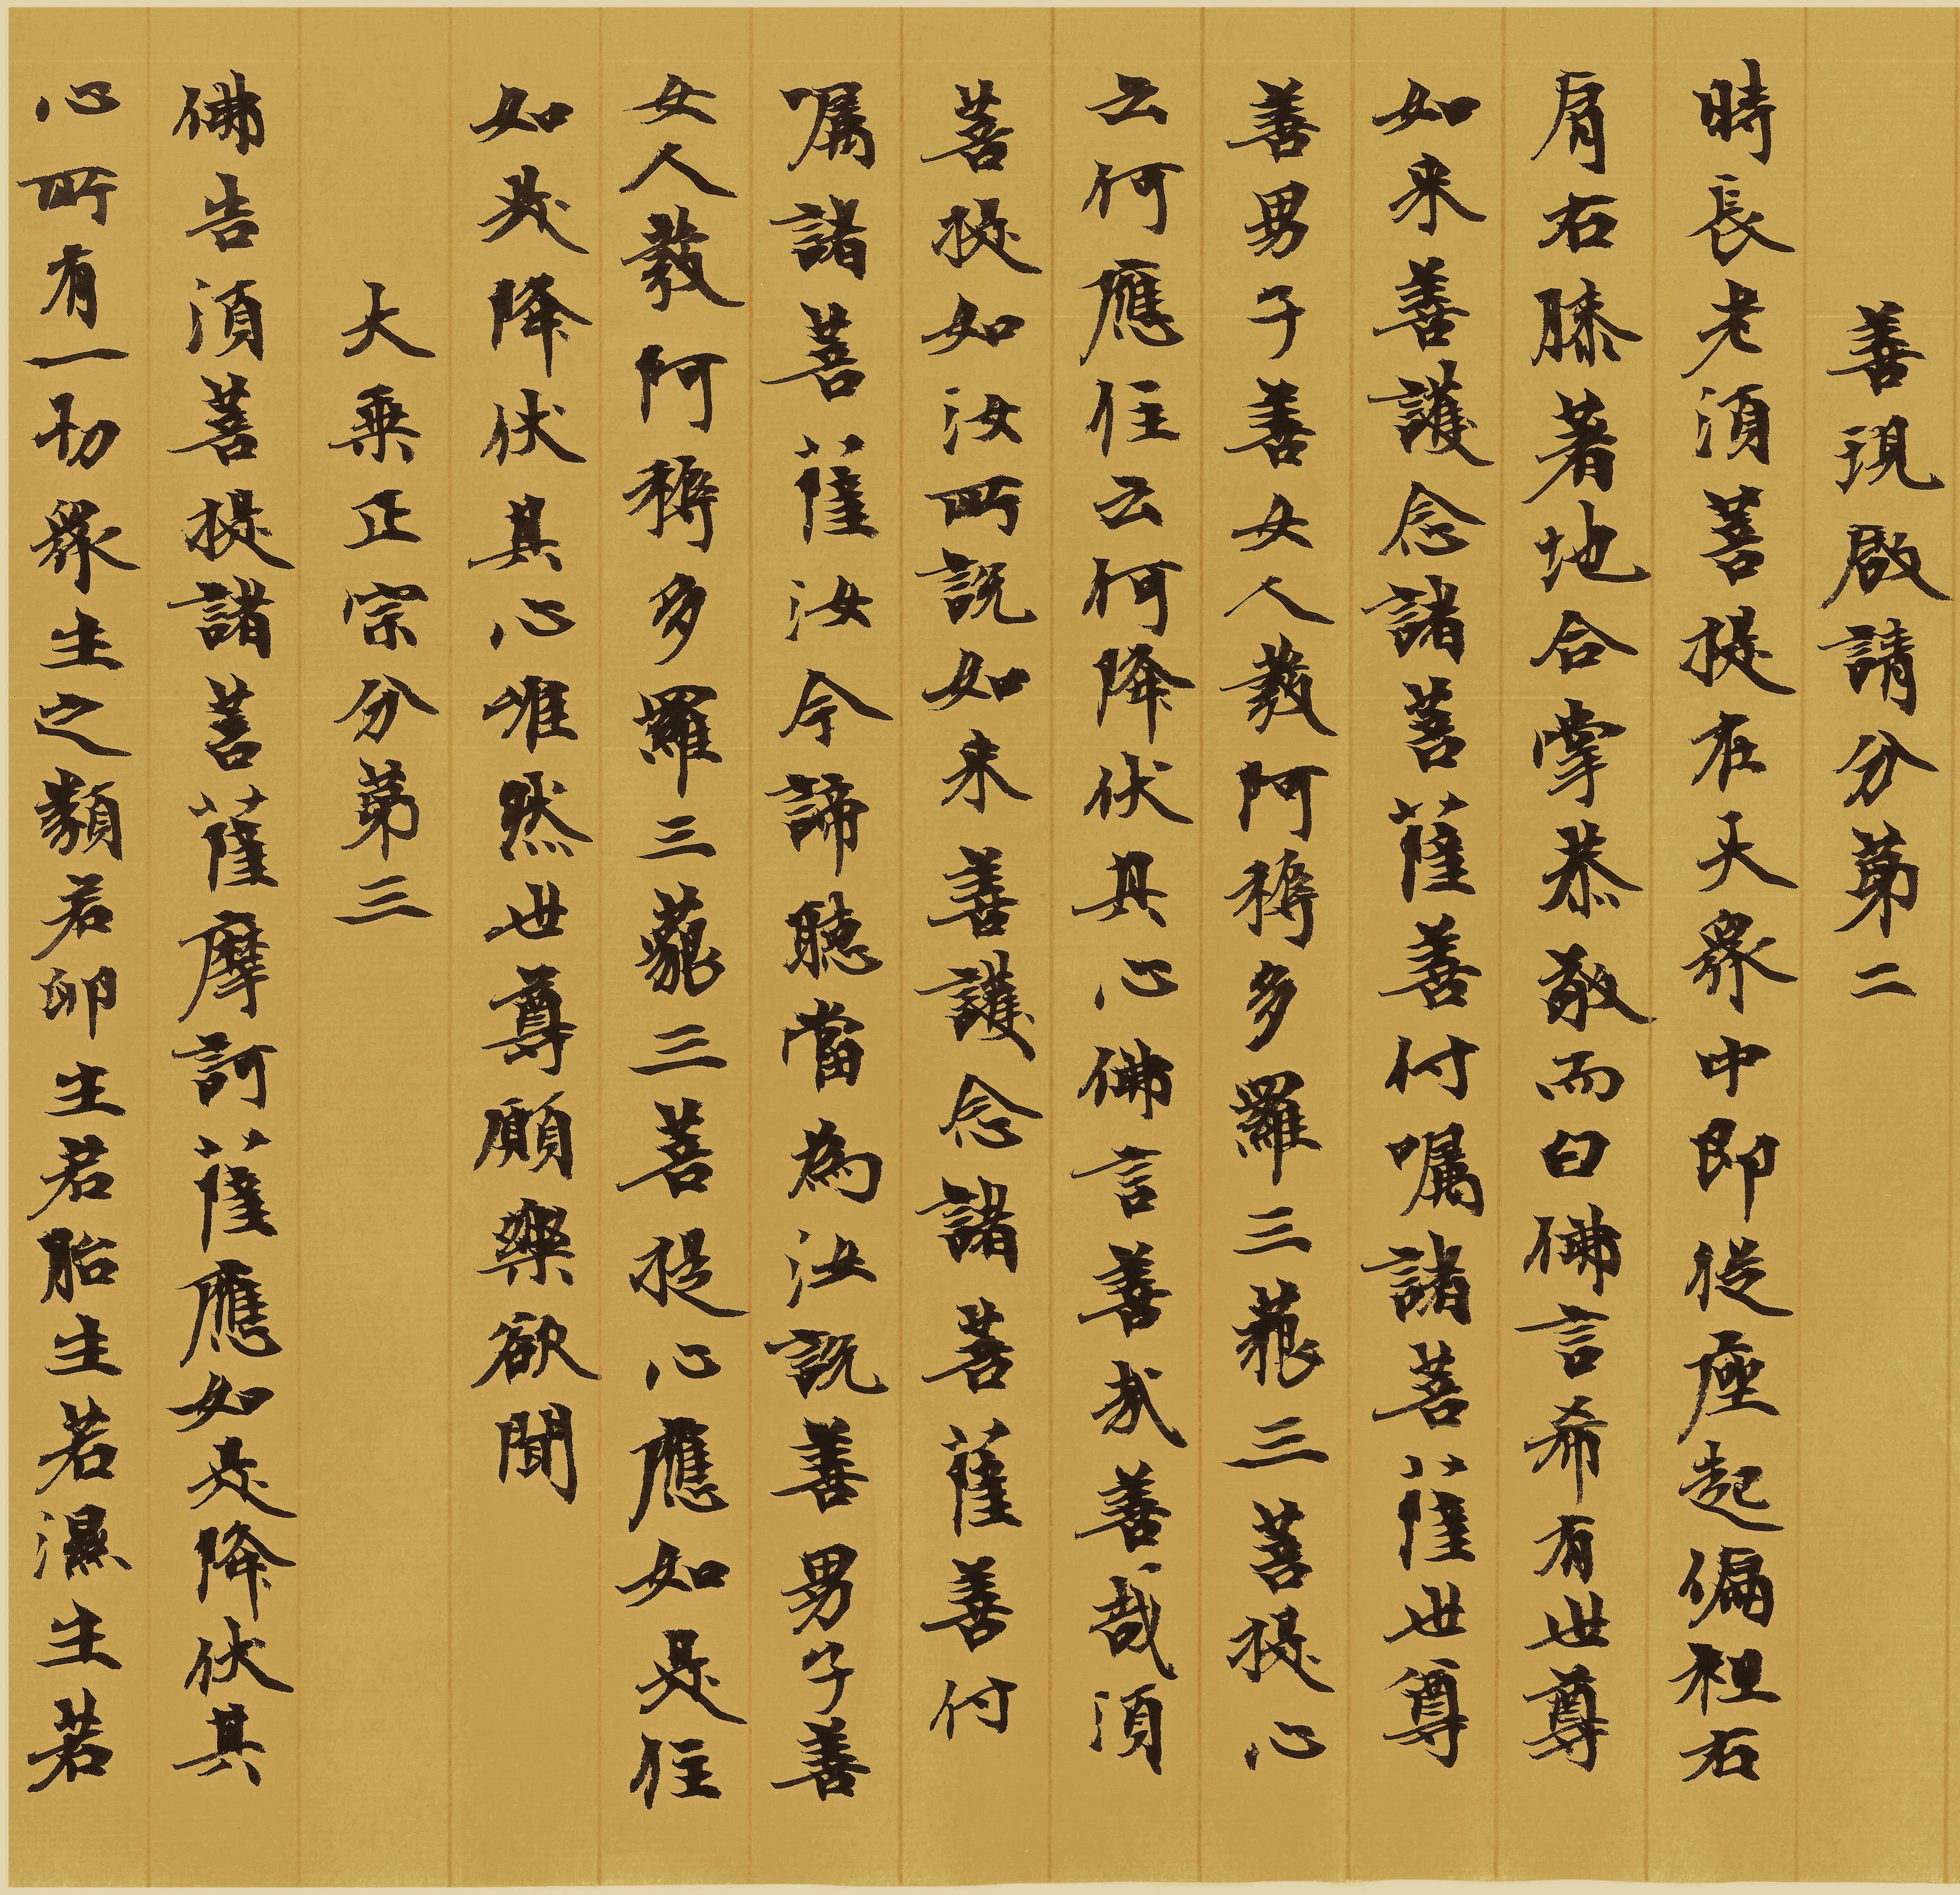 善現啟請分第二
時長老須菩提在大眾中即從座起偏袒右
肩右膝著地合掌恭敬而白佛言希有世尊
如来善護念諸菩薩善付囑諸菩薩世尊
善男子善女人發阿耨多羅三藐三菩提心
云何應住云何降伏其心佛言善哉善哉須
菩提如汝所說如来善護念諸菩薩善付
囑諸菩薩汝今諦聽當為汝說善男子善
女人發阿耨多羅三藐三菩提心應如是住
如是降伏其心唯然世尊願樂欲聞
大乘正宗分第三
佛告須菩提諸菩薩摩訶薩應如是降伏其
心所有一切眾生之類若卵生若胎生若濕生若